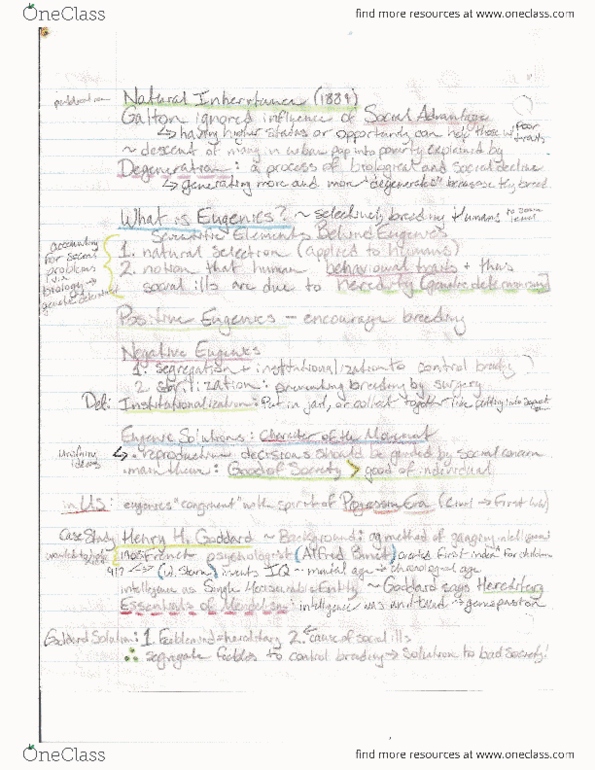 OneClass
find more resources at www.oneclass.com
publication Natural Inheritance (1889)
Galton ignored influence of Social Advantage
↳ having higher status or opportunity can help those w/ poor traits
~ descent of many in urban pop into poverty explained by
Degeneration: a process of biological and social decline
↳ generating more and more "degenerates" because they breed
What is Eugenics? ~ selectively breeding humans to some level
Scientific Elements Behind Eugenics
accounting for social problems via biology →
1. natural selection (applied to humans)
2. notion that human behavioural traits + thus
social ills are due to heredity (genetic determinism)
Positive Eugenics - encourage breeding
Negative Eugenics
1. segregation + institutionalization to control breeding
2. sterilization: preventing breeding by surgery
Def: Institutionalization: Put in jail, or collect together like putting into
Eugenic Solutions: Character of the Movement
unifying ideas ↳ • reproductive decisions should be guided by social concern
• main theme: Good of Society > good of individual
in US: eugenics "congruent" with spirit of Progressive Era
Case Study Henry H. Goddard ~ Background: method of gauging intelligence
French psychologist (Alfred Binet) created first index for children
(W. Stern) invents IQ - mental age ÷ chronological age
intelligence as Single Measurable Entity ~ Goddard says Hereditary
Essentials of Mendelism: intelligence was
Goddard Solution: 1. Feebleminded = hereditary 2. cause of social ills
∴ segregate feebles to control breeding → Solution to bad society!
OneClass
find more resources at www.oneclass.com